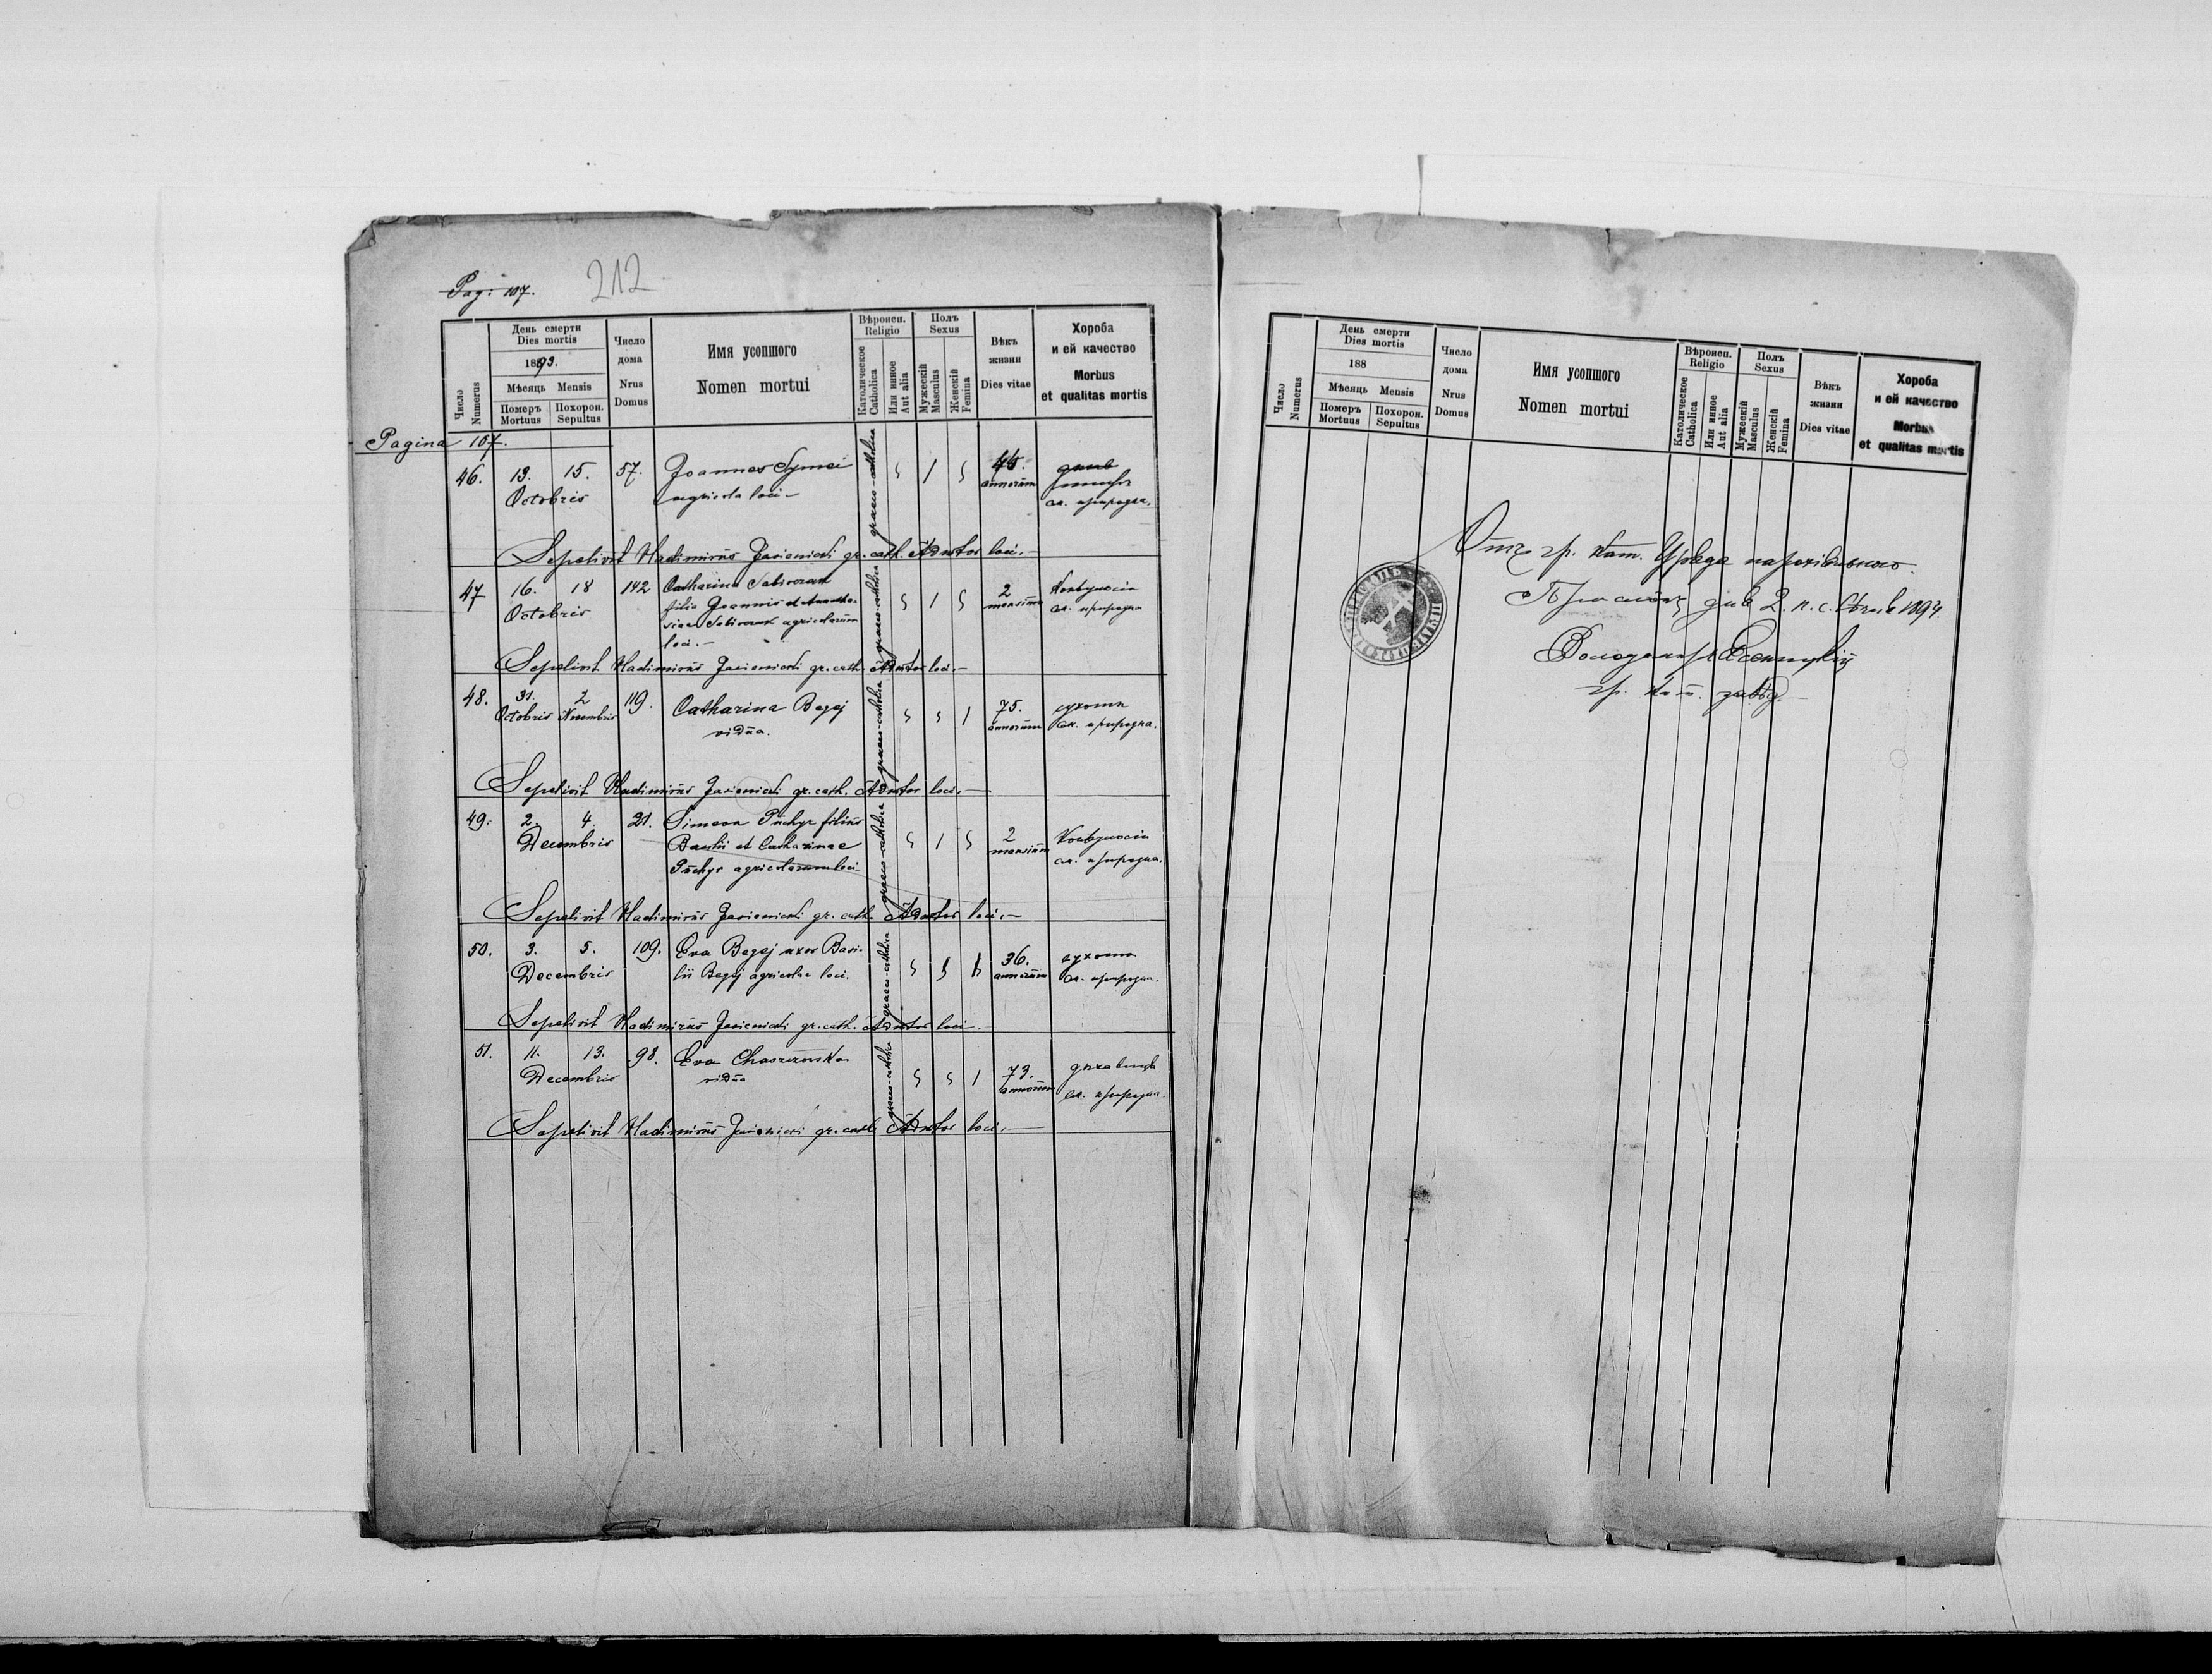 Pag: 107. 212
Число Numerus
День смерти
Dies mortis
1893.
Мѣсяць Mensis
Померъ Mortuus
Похорон. Sepultus
Число дома
Nrus Domus
Имя усопшого
Nomen mortui
Вѣроисп. Religio
Католическое Catholica
Или инное Aut alia
Полъ Sexus
Мужескій Masculus
Женскій Femina
Вѣкъ жизни
Dies vitae
Хороба
и ей качество
Morbus
et qualitas mortis
Pagina 107.
46. 13. 15. 57. Joannes Symei graeco-catholica 1 45.
Octobris agricola loci annorum
Sepelivit Wladimirus Jasienicki gr. cath. Adm̃tor loci.
47 16. 18 142 Catharina graeco-catholica 1 2
Octobris filia Joannis et Anasta- mensium
siae agricolarum
loci.
Sepelivit Wladimirus Jasienicki gr. cath. Adm̃tor loci.
48. 31. 2 119. Catharina Begej graeco-catholica 1 75. сухоты
Octobris Novembris vidua. annorum см. природна.
Sepelivit Wladimirus Jasienicki gr. cath. Adm̃tor loci.
49. 2. 4. 21. Simeon Puchyr filius graeco-catholica 1 2
Decembris Basilii et Catharinae mensium см. природна.
Puchyr agricolarum loci
Sepelivit Wladimirus Jasienicki gr. cath. Adm̃tor loci.
50. 3. 5. 109. Eva Begej uxor Basi- graeco-catholica 1 36. сухоты
Decembris lii Begej agricolae loci. annorum см. природна.
Sepelivit Wladimirus Jasienicki gr. cath. Adm̃tor loci.
51. 11. 13. 98. Eva graeco-catholica 1 73.
Decembris vidua annorum см. природна.
Sepelivit Wladimirus Jasienicki gr. cath. Adm̃tor loci.
Число Numerus
День смерти
Dies mortis
188
Мѣсяць Mensis
Померъ Mortuus
Похорон. Sepultus
Число дома
Nrus Domus
Имя усопшого
Nomen mortui
Вѣроисп. Religio
Католическое Catholica
Или инное Aut alia
Полъ Sexus
Мужескій Masculus
Женскій Femina
Вѣкъ жизни
Dies vitae
Хороба
и ей качество
Morbus
et qualitas mortis
Отъ гр. кат. Уряда парохіяльного.
дня 2. н. с. 1894.
Володимир Ясеницкій
гр. кат. завѣд.